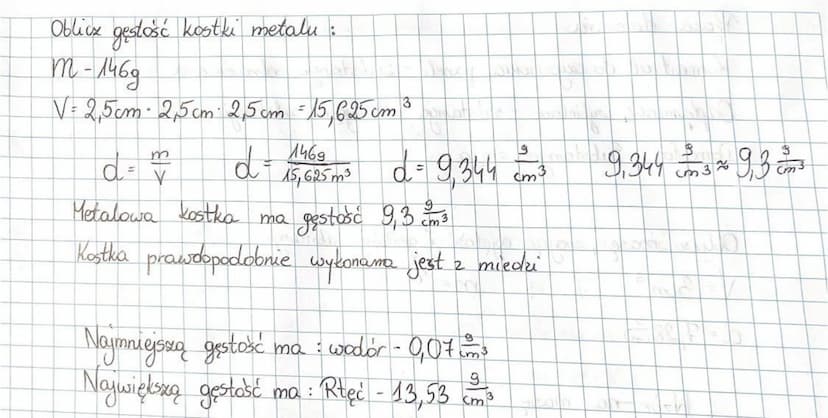 Oblicz gęstość kostki metalu :
m - 146g
V = 2,5cm · 2,5cm · 2,5cm = 15,625cm³
d = m/V d = 146g/15,625m³ d = 9,344 g/cm³ 9,344 g/cm³ ≈ 9,3 g/cm³
Metalowa kostka ma gęstość 9,3 g/cm³
Kostka prawdopodobnie wykonama jest z miedzi
Najmniejszą gęstość ma : wodór - 0,07 g/cm³
Największą gęstość ma : Rtęć - 13,53 g/cm³